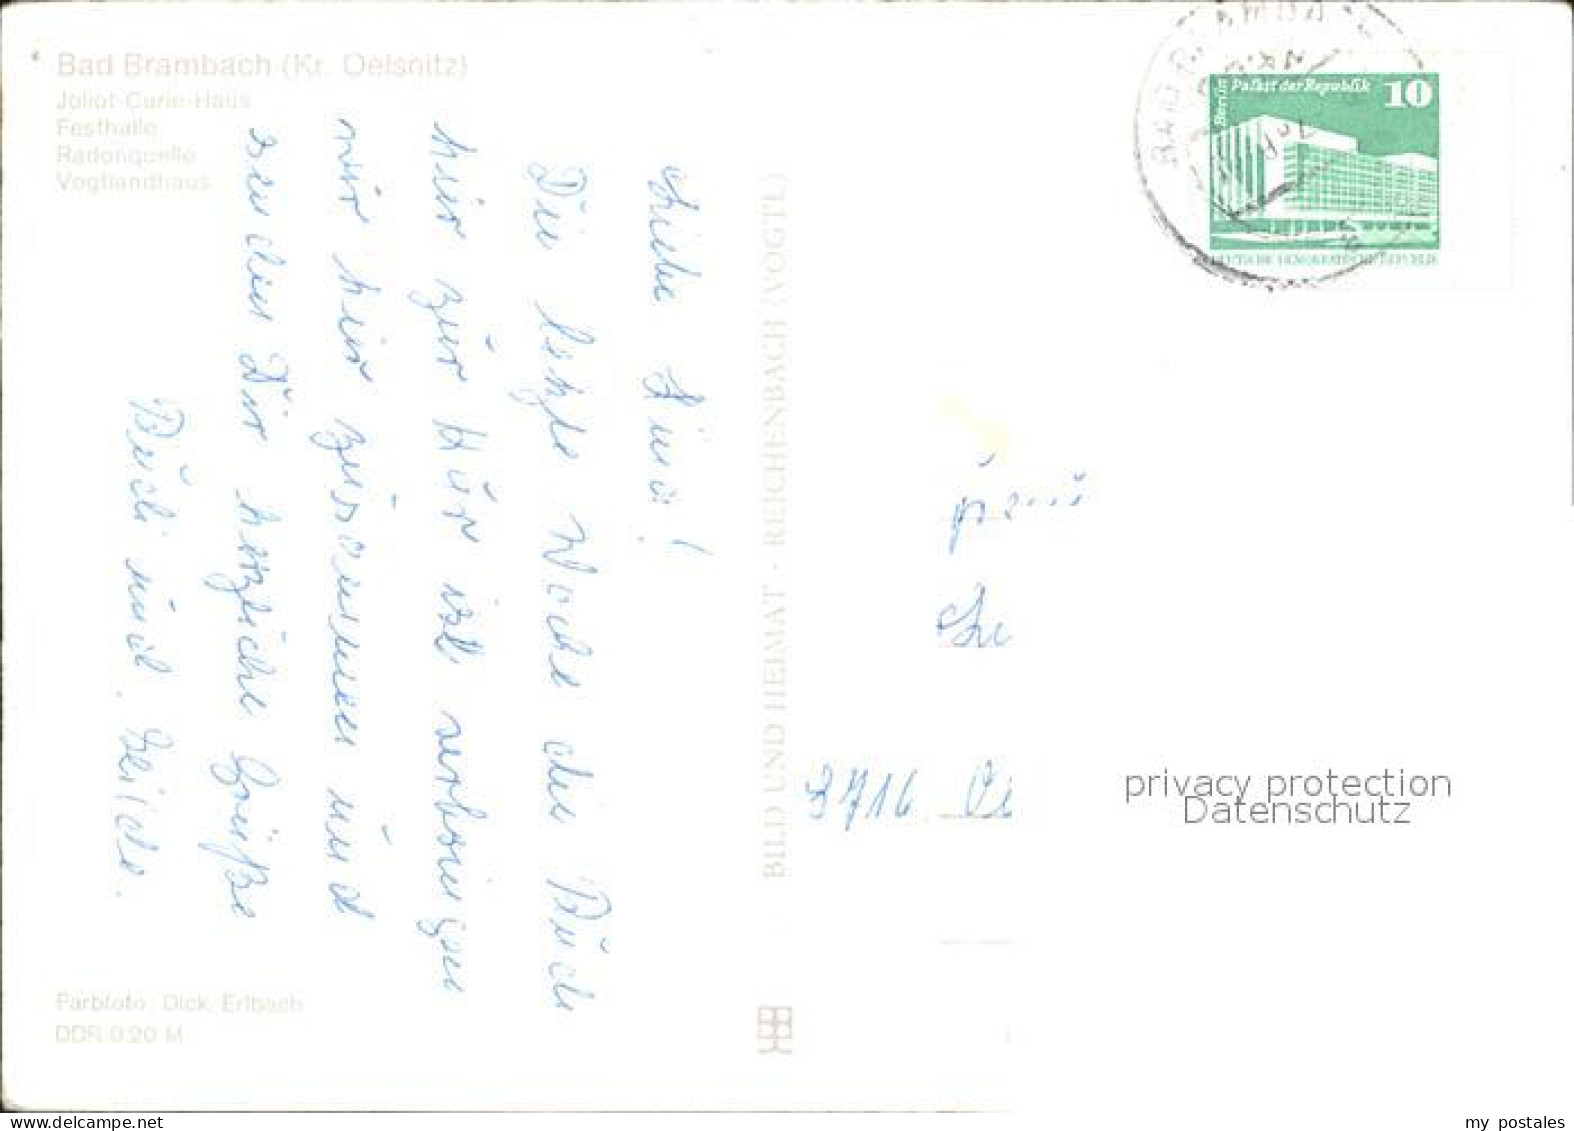 Bad Brambach (Kr. Oelsnitz)
Joliot-Curie-Haus
Festhalle
Radonquelle
Vogtlandhaus
Liebe Lina!
Die letzte Woche die Ruth
hier zur Kur ist verbringen
wir hier zusammen und
senden Dir herzliche Grüße
Ruth und
Farbfoto: Dick, Erlbach
DDR 0.20 M
BILD UND HEIMAT · REICHENBACH (VOGTL)
BAD BRAMBACH
Berlin Palast der Republik 10
DEUTSCHE DEMOKRATISCHE REPUBLIK
Frau
privacy protection
Datenschutz
my postales
www.delcampe.net